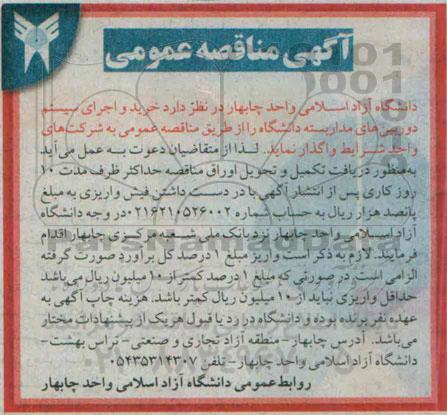 آگهی مناقصه عمومی
دانشگاه آزاد اسلامی واحد چابهار در نظر دارد خرید و اجرای سیستم
دوربین های مداربسته دانشگاه را از طریق مناقصه عمومی به شرکت های
واجد شرایط واگذار نماید. لذا از متقاضیان دعوت به عمل می آید
به منظور دریافت تکمیل و تحویل اوراق مناقصه حداکثر ظرف مدت ۱۰
روز کاری پس از انتشار آگهی با در دست داشتن فیش واریزی به مبلغ
پانصد هزار ریال به حساب شماره ۰۲۱۶۲۱۰۵۲۶۰۰۲ در وجه دانشگاه
آزاد اسلامی واحد چابهار نزد بانک ملی شعبه مرکزی چابهار اقدام
فرمایند. لازم به ذکر است واریز مبلغ ۱ درصد کل برآورد صورت گرفته
الزامی است در صورتی که مبلغ ۱ درصد کمتر از ۱۰ میلیون ریال می باشد
حداقل واریزی نباید از ۱۰ میلیون ریال کمتر باشد. هزینه چاپ آگهی به
عهده نفر برنده بوده و دانشگاه در رد یا قبول هر یک از پیشنهادات مختار
می باشد. آدرس چابهار- منطقه آزاد تجاری و صنعتی- تراس بهشت-
دانشگاه آزاد اسلامی واحد چابهار- تلفن ۰۵۴۳۵۳۱۴۳۰۷
روابط عمومی دانشگاه آزاد اسلامی واحد چابهار
ParsNamadData